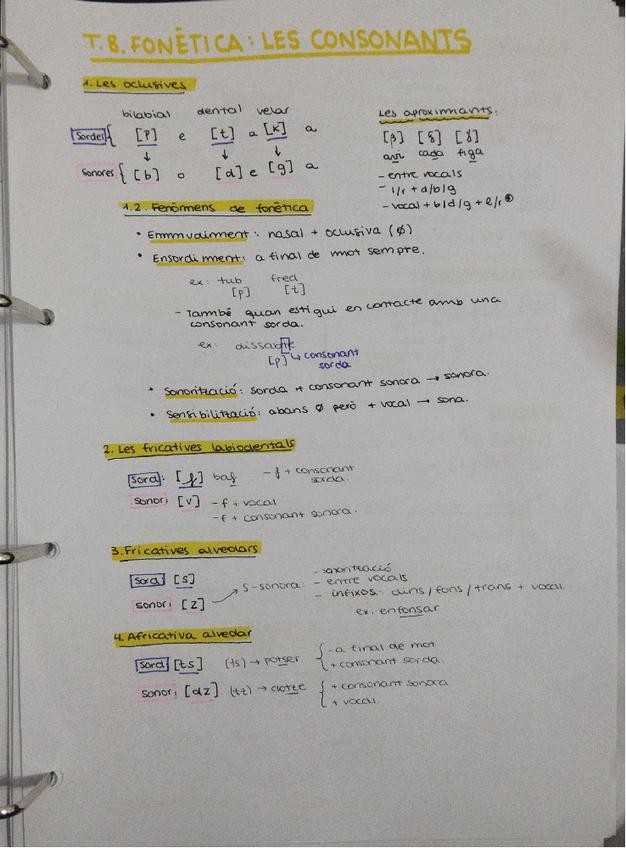 T.8. FONÈTICA: LES CONSONANTS
1. Les oclusives
bilabial dental velar
Sordes { [p] e [t] a [k] a
↓ ↓ ↓
Sonores { [b] o [d] e [g] a
Les aproximants:
[β] [ð] [ɣ]
avi cada figa
- entre vocals
- l/r + d/b/g
- vocal + b/d/g + l/r
1.2. Fenòmens de fonètica
• Emmudiment: nasal + oclusiva (ø)
• Ensordiment: a final de mot sempre.
ex: tub fred
[p] [t]
- També quan estigui en contacte amb una
consonant sorda.
ex: dissabte
[p] ↳ consonant
sorda
• Sonorització: sorda + consonant sonora → sonora.
• Sensibilització: abans ø però + vocal → sona.
2. Les fricatives labiodentals
Sord: [f] baf - f + consonant
sorda.
Sonor: [v] - f + vocal
- f + consonant sonora.
3. Fricatives alveolars
Sord [s]
sonor: [z] → S-sonora:
- sonorització
- entre vocals
- infixos: dins/fons/trans + vocal.
ex: enfonsar
4. Africativa alveolar
Sord: [ts] (ts) → potser { - a final de mot
+ consonant sorda.
Sonor: [dz] (tz) → dotze { + consonant sonora
+ vocal.